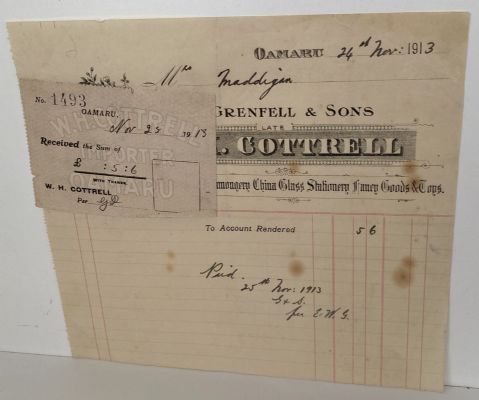 OAMARU 24th Nov: 1913
Mrs Maddigan
GRENFELL & SONS
LATE
H. COTTRELL
Stationery Fancy Goods & Toys.
To Account Rendered 5 6
Paid.
25th Nov: 1913
G & S.
per E.W.G.
No. 1493
OAMARU,
Nov 25 1913
W.H. COTTRELL
IMPORTER
OAMARU
Received the Sum of
£ : 5 : 6
WITH THANKS
W. H. COTTRELL
Per